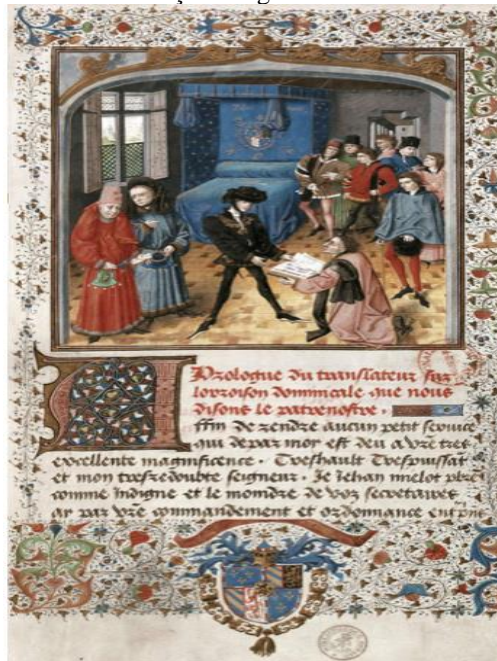 Prologue du translateur sur
lorroison dominicale que nous
disons le patrenostre.
Affin de rendre aucun petit service
qui de par moy est deu a vre tres
excellente magnificence. Treshault Trespuissãt
et mon tresredoubte seigneur. Je Jehan mielot pbre
comme indigne et le moindre de voz secretaires
ay par vre commandement et ordonnance